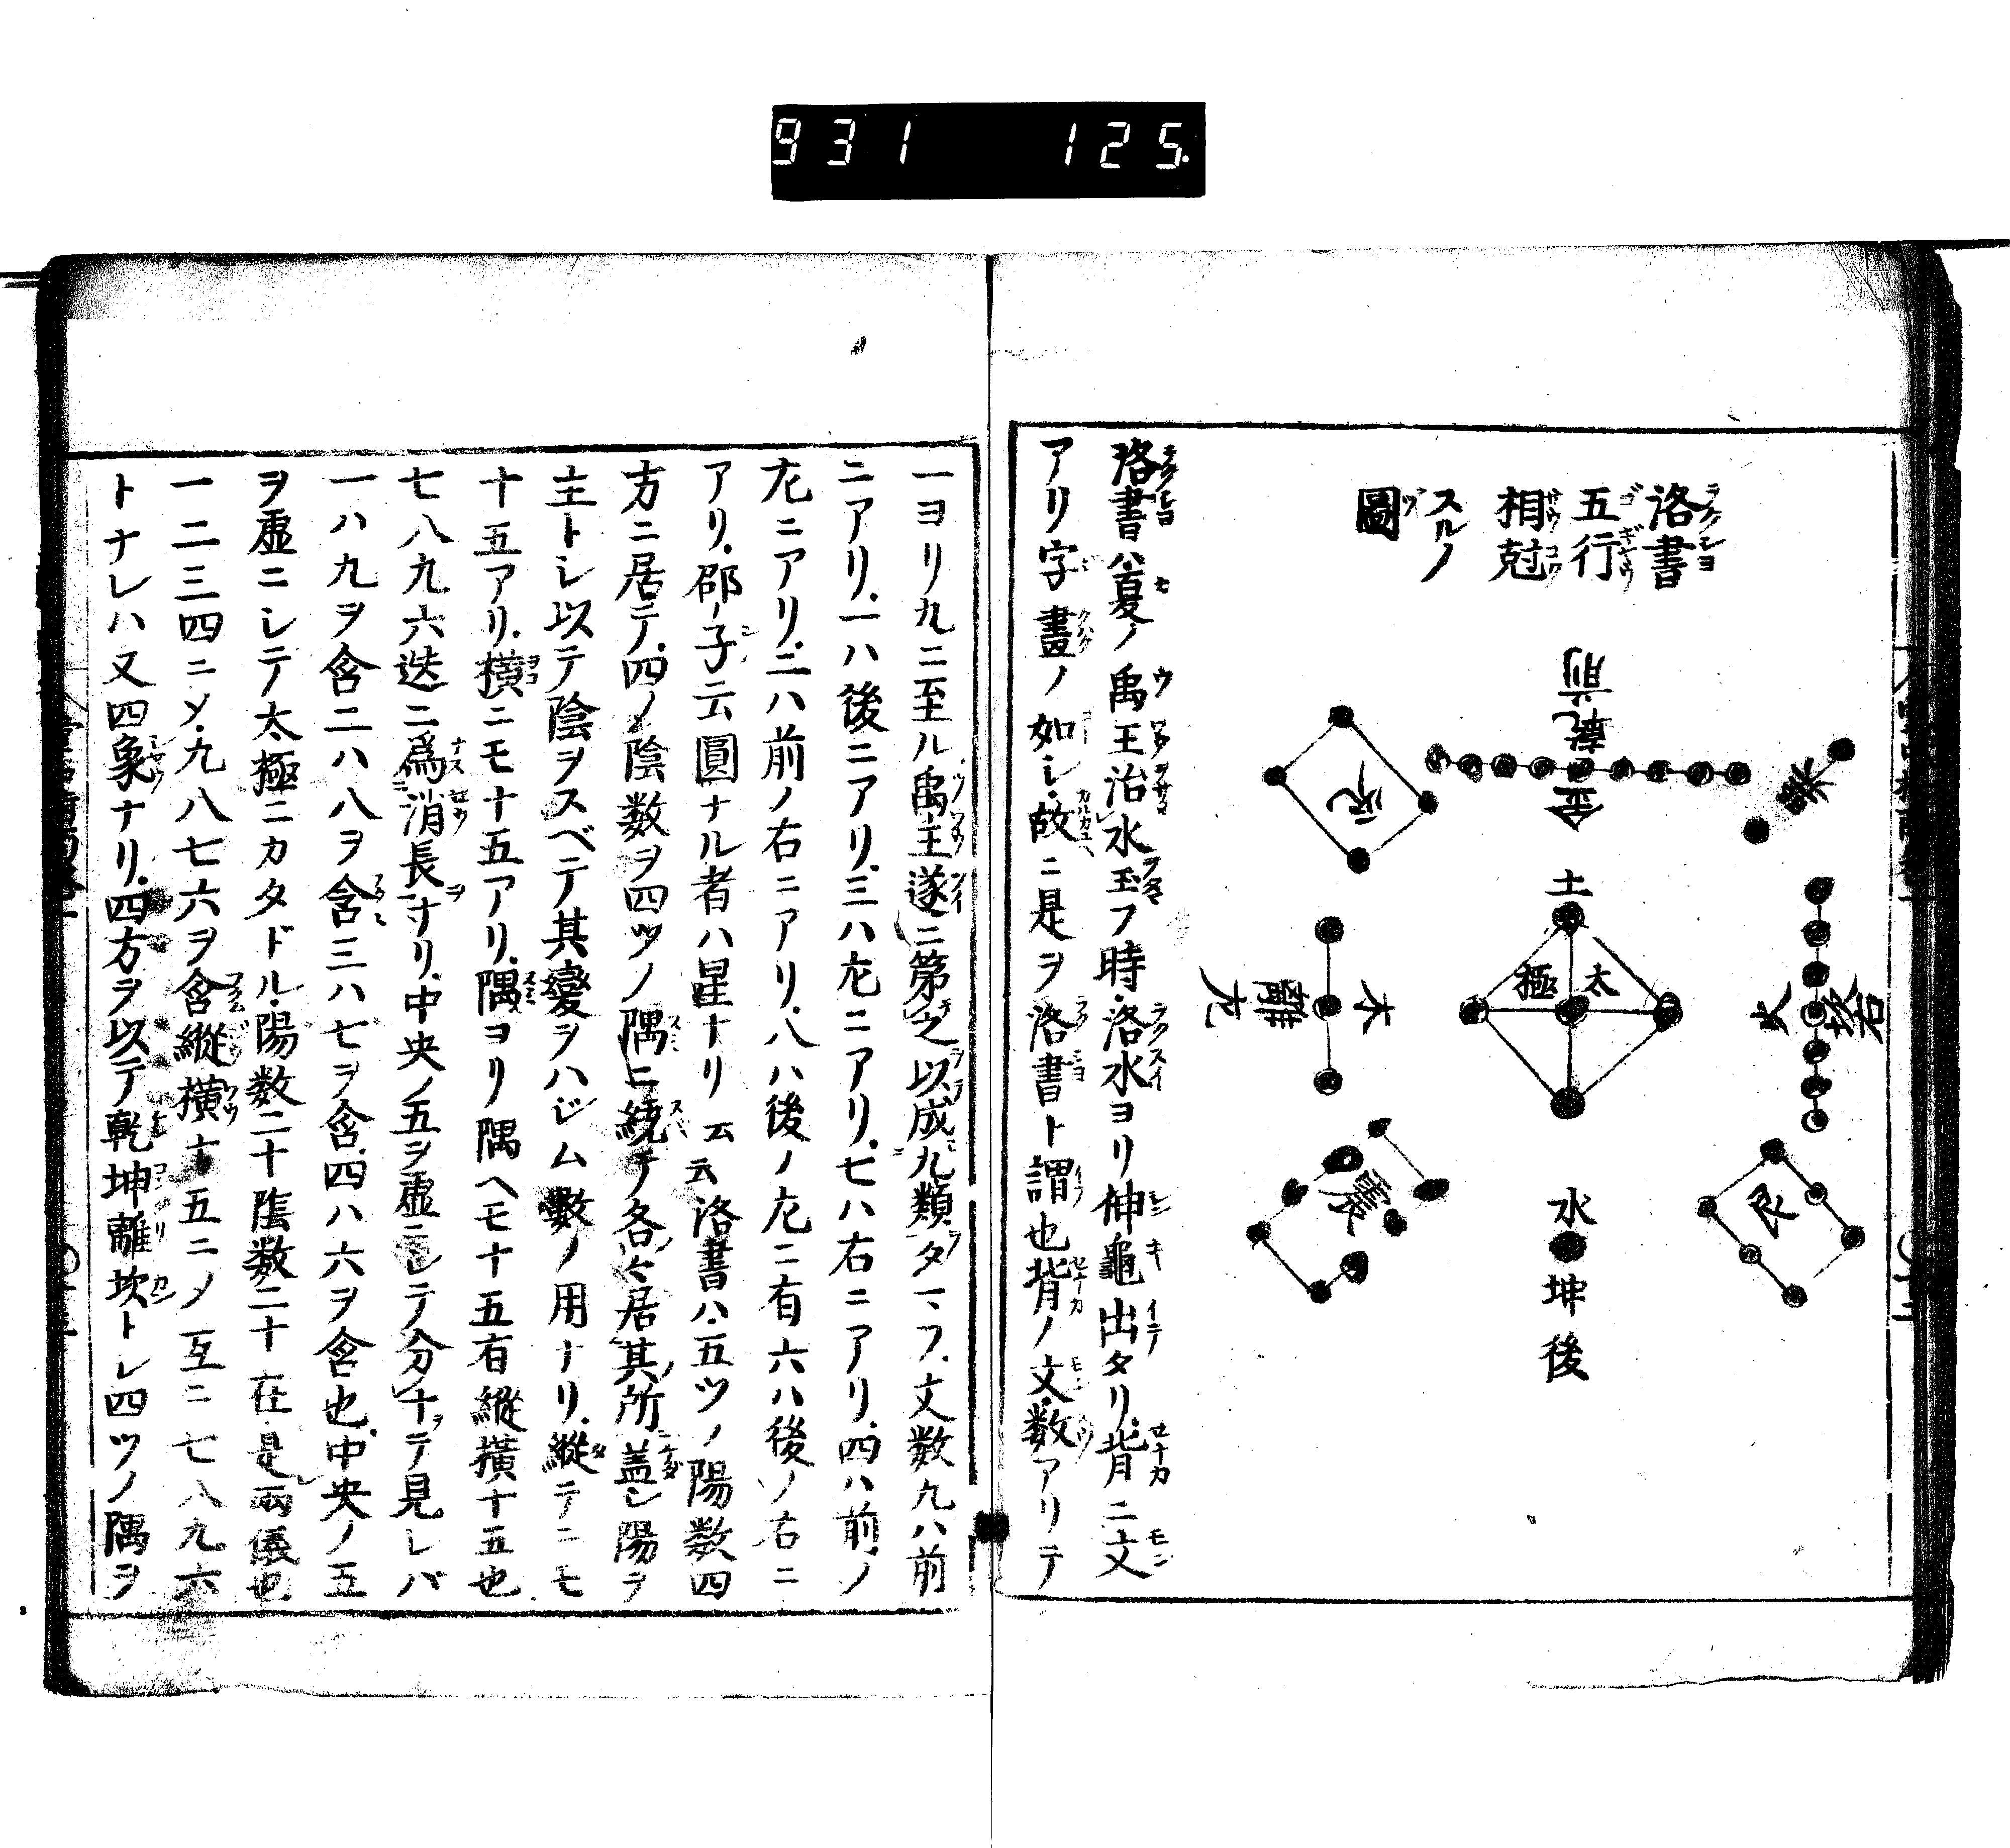 931 125.
洛書
五行
相尅
スルノ
圖
前
乾
金
巽
兌
土
太
極
火
坎
右
木
離
左
震
艮
水
坤
後
洛書ハ夏ノ禹王治水玉フ時洛水ヨリ神龜出タリ背ニ文
アリ字畫ノ如シ故ニ是ヲ洛書ト謂也背ノ文数アリテ
一ヨリ九ニ至ル禹王遂ニ第之以成九類タマフ文数九ハ前
ニアリ一ハ後ニアリ三ハ左ニアリ七ハ右ニアリ四ハ前ノ
左ニアリ二ハ前ノ右ニアリ八ハ後ノ左ニ有六ハ後ノ右ニ
アリ邵子云圓ナル者ハ星ナリ云云洛書ハ五ツノ陽数四
方ニ居テ四ノ陰数ヲ四ツノ隅ニ統テ各々居其所盖シ陽ヲ
主トシ以テ陰ヲスベテ其變ヲハジム數ノ用ナリ縦テニモ
十五アリ横ニモ十五アリ隅ヨリ隅ヘモ十五有縦横十五也
七八九六迭ニ為消長ナリ中央ノ五ヲ虚ニシテ分十テ見レバ
一ハ九ヲ含二ハ八ヲ含三ハ七ヲ含四ハ六ヲ含也中央ノ五
ヲ虚ニシテ太極ニカタドル陽数二十陰数二十在是兩儀也
一二三四ニメ九八七六ヲ含縦横十五ニメ互ニ七八九六
トナレハ又四象ナリ四方ヲ以テ乾坤離坎トレ四ツノ隅ヲ